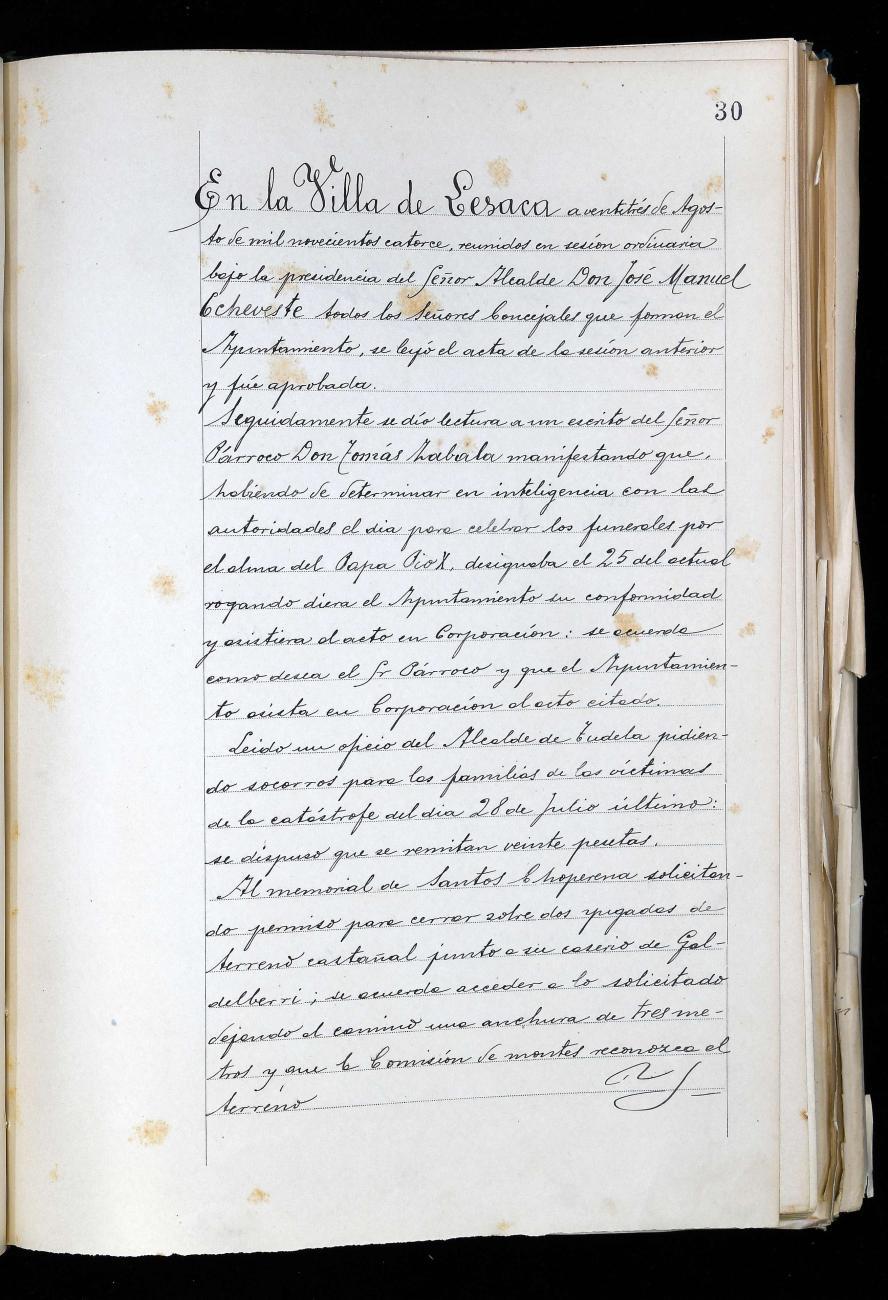 30
En la Villa de Lesaca a ventitrés de Agos-
to de mil novecientos catorce, reunidos en sesión ordinaria
bajo la presidencia del Señor Alcalde Don José Manuel
Echeveste todos los Señores Concejales que forman el
Ayuntamiento, se leyó el acta de la sesión anterior
y fué aprobada.
Seguidamente se dio lectura a un escrito del Señor
Párroco Don Tomás Zabala manifestando que,
habiendo de determinar en inteligencia con las
autoridades el dia para celebrar los funerales por
el alma del Papa Pio X, designaba el 25 del actual
rogando diera el Ayuntamiento su conformidad
y asistiera al acto en Corporación: se acuerda
como desea el Sr Párroco y que el Ayuntamien-
to asista en Corporación al acto citado.
Leido un oficio del Alcalde de Tudela pidien-
do socorros para las familias de las víctimas
de la catástrofe del dia 28 de Julio último:
se dispuso que se remitan veinte pesetas.
Al memorial de Santos Choperena solicitan-
do permiso para cerrar sobre dos yugadas de
terreno castañal junto a su caserio de Gal-
delberri; se acuerda acceder a lo solicitado
dejando al camino una anchura de tres me-
tros y que la Comisión de montes reconozca el
terreno